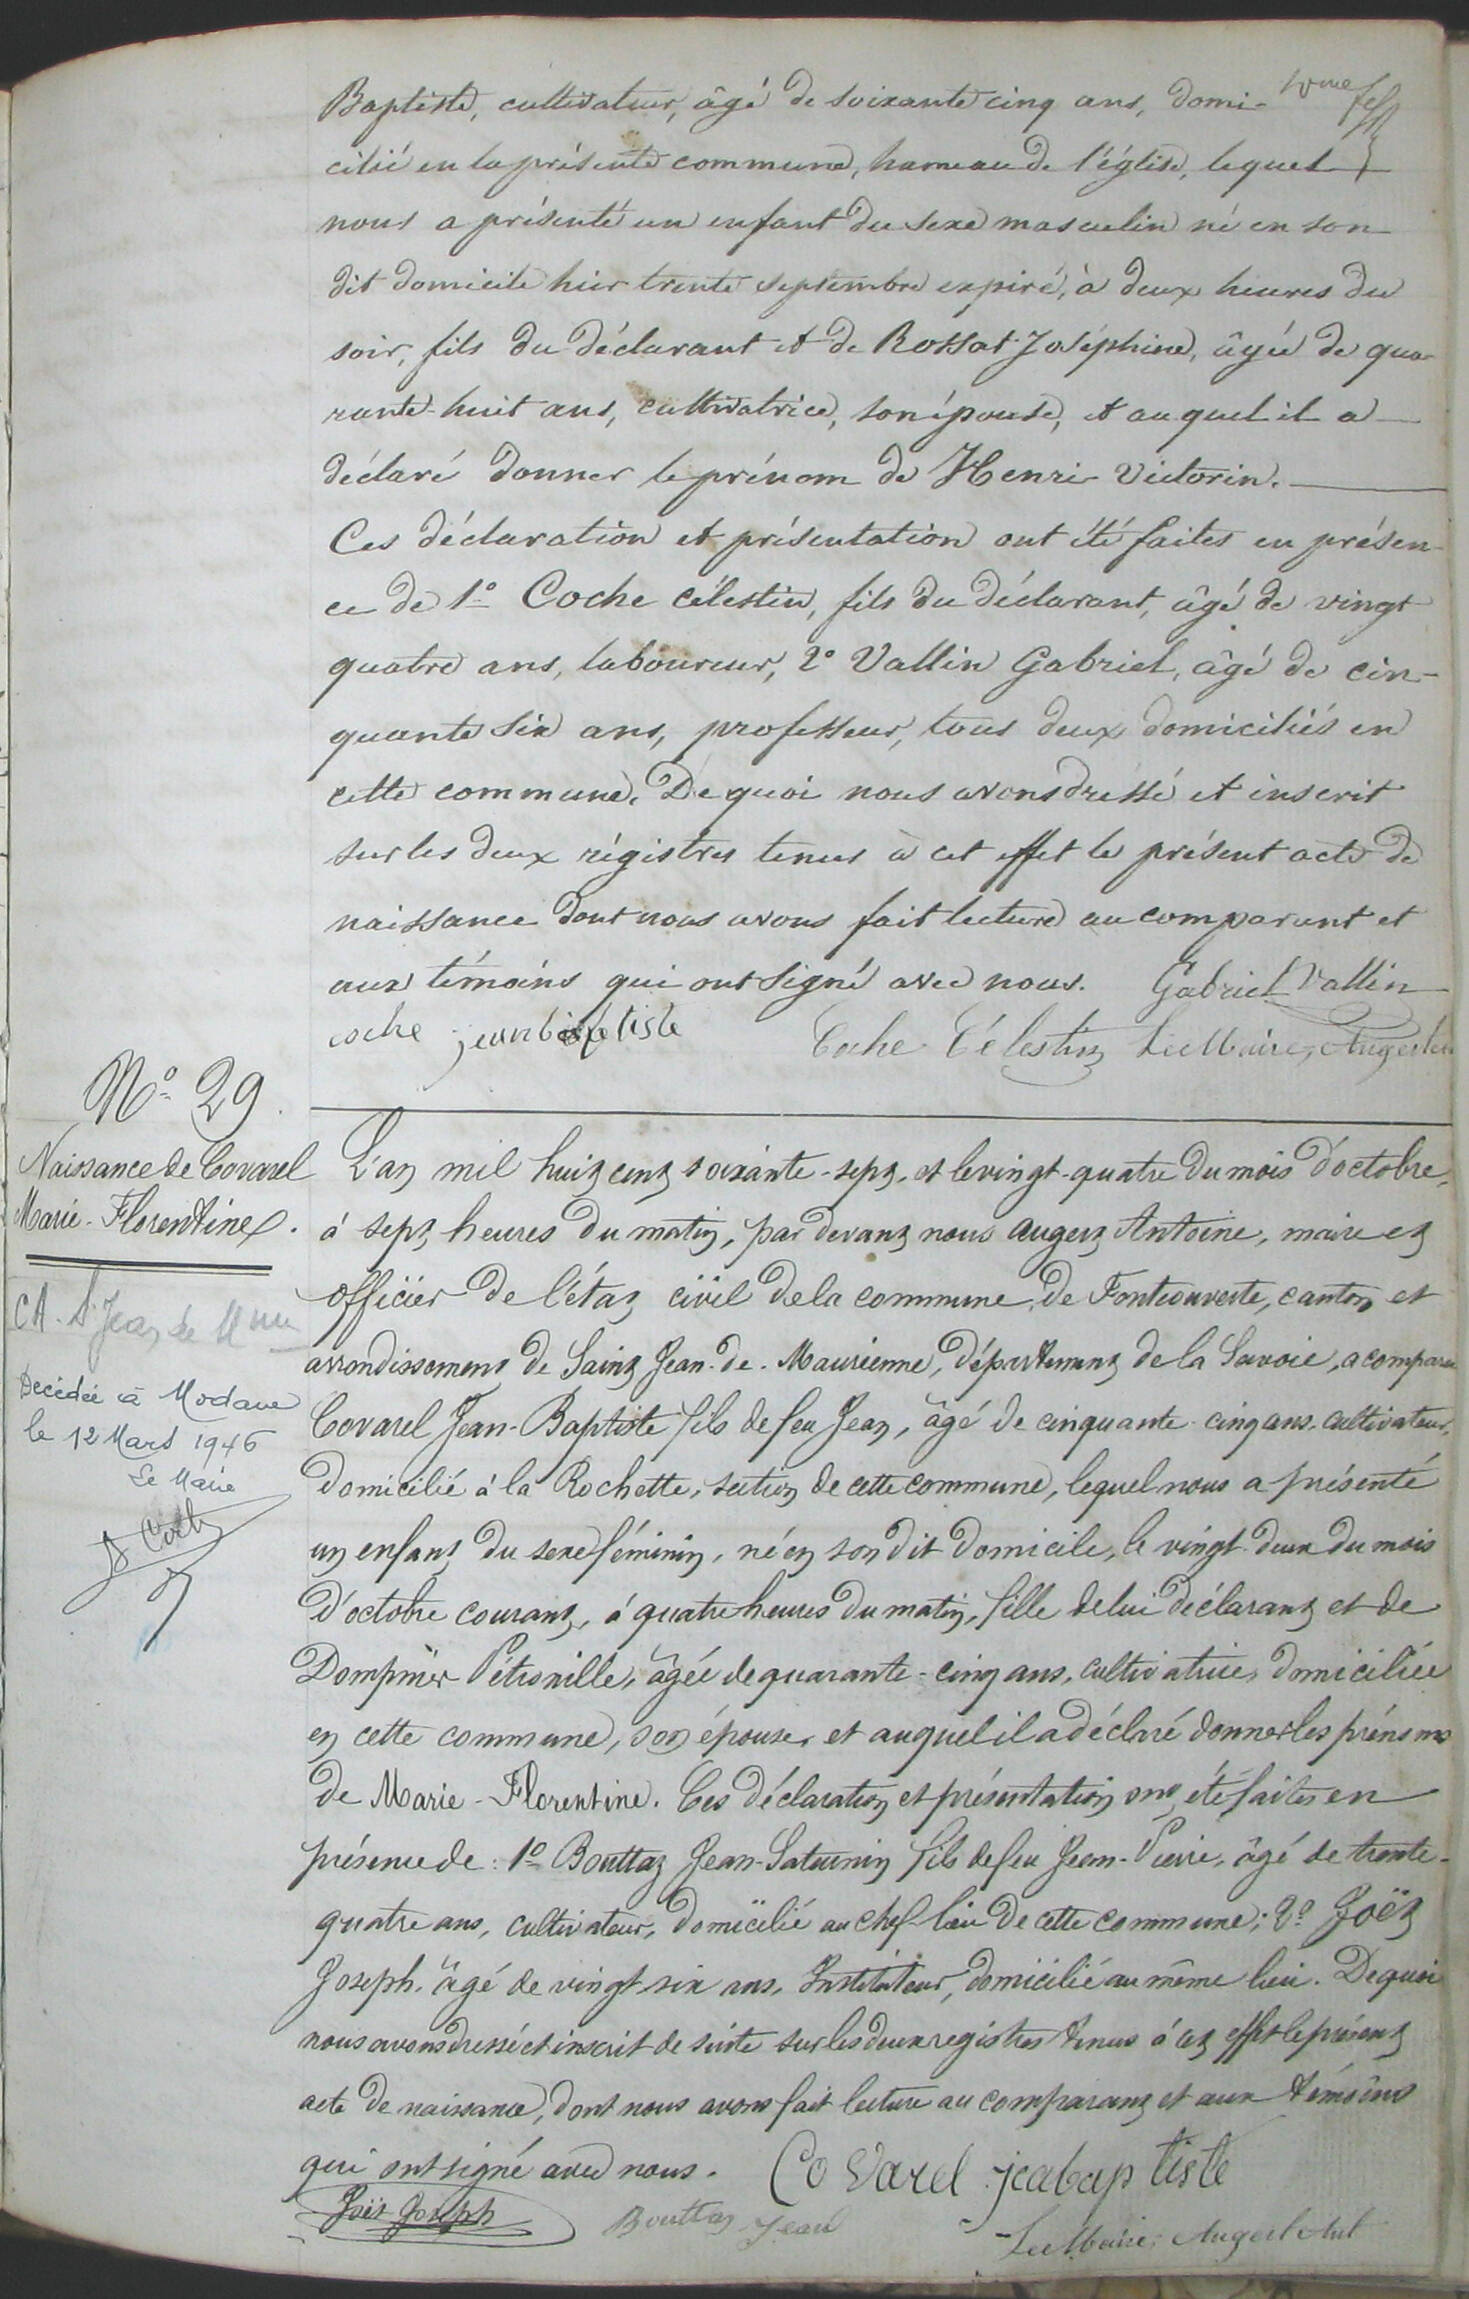 10me
Baptiste, cultivateur, âgé de soixante cinq ans, domi-
cilié en la présente commune, hameau de l'église, lequel
nous a présenté un enfant du sexe masculin né en son
dit domicile hier trente septembre expiré, à deux heures du
soir, fils du déclarant et de Rossat Joséphine, âgée de qua-
rante-huit ans, cultivatrice, son épouse, et auquel il a
déclaré donner le prénom de Henri Victorin.
Ces déclaration et présentation ont été faites en présen-
ce de 1° Coche Célestin, fils du déclarant, âgé de vingt
quatre ans, laboureur, 2° Vallin Gabriel, âgé de cin-
quante six ans, professeur, tous deux domiciliés en
cette commune. De quoi nous avons dressé et inscrit
sur les deux régistres tenus à cet effet le présent acte de
naissance dont nous avons fait lecture au comparant et
aux témoins qui ont signé avec nous. Gabriel Vallin
coche jean baptiste Coche Célestin Le Maire, Augert
N° 29
Naissance de Covarel
Marie-Florentine.
CA. St Jean de Mnne
Décédée à Modane
le 12 Mars 1946
Le Maire
L'an mil huit cent soixante-sept, et le vingt-quatre du mois d'octobre,
à sept heures du matin, par devant nous Augert Antoine, maire et
officier de l'état civil de la commune de Fontcouverte, canton et
arrondissement de Saint Jean-de-Maurienne, département de la Savoie, a comparu
Covarel Jean-Baptiste fils de feu Jean, âgé de cinquante-cinq ans, cultivateur,
domicilié à la Rochette, section de cette commune, lequel nous a présenté
un enfant du sexe féminin, né en son dit domicile, le vingt-deux du mois
d'octobre courant, à quatre heures du matin, fille de lui déclarant et de
Dompnier Pétronille, âgée de quarante-cinq ans, cultivatrice, domiciliée
en cette commune, son épouse, et auquel il a déclaré donner les prénoms
de Marie-Florentine. Ces déclaration et présentation ont été faites en
présence de : 1° Bouttaz Jean-Saturnin fils de feu Jean-Pierre, âgé de trente-
quatre ans, cultivateur, domicilié au chef-lieu de cette commune; 2° Joët
Joseph, âgé de vingt-six ans, Instituteur, domicilié au même lieu. De quoi
nous avons dressé et inscrit de suite sur les deux registres tenus à cet effet le présent
acte de naissance, dont nous avons fait lecture au comparant et aux témoins
qui ont signé avec nous. Covarel jeabaptiste
Joët Joseph Bouttaz Jean Le Maire, Augert Ant